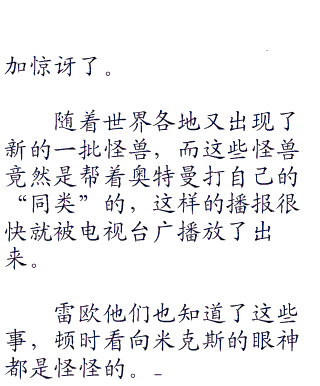 加惊讶了。
随着世界各地又出现了
新的一批怪兽，而这些怪兽
竟然是帮着奥特曼打自己的
“同类”的，这样的播报很
快就被电视台广播放了出
来。
雷欧他们也知道了这些
事，顿时看向米克斯的眼神
都是怪怪的。_